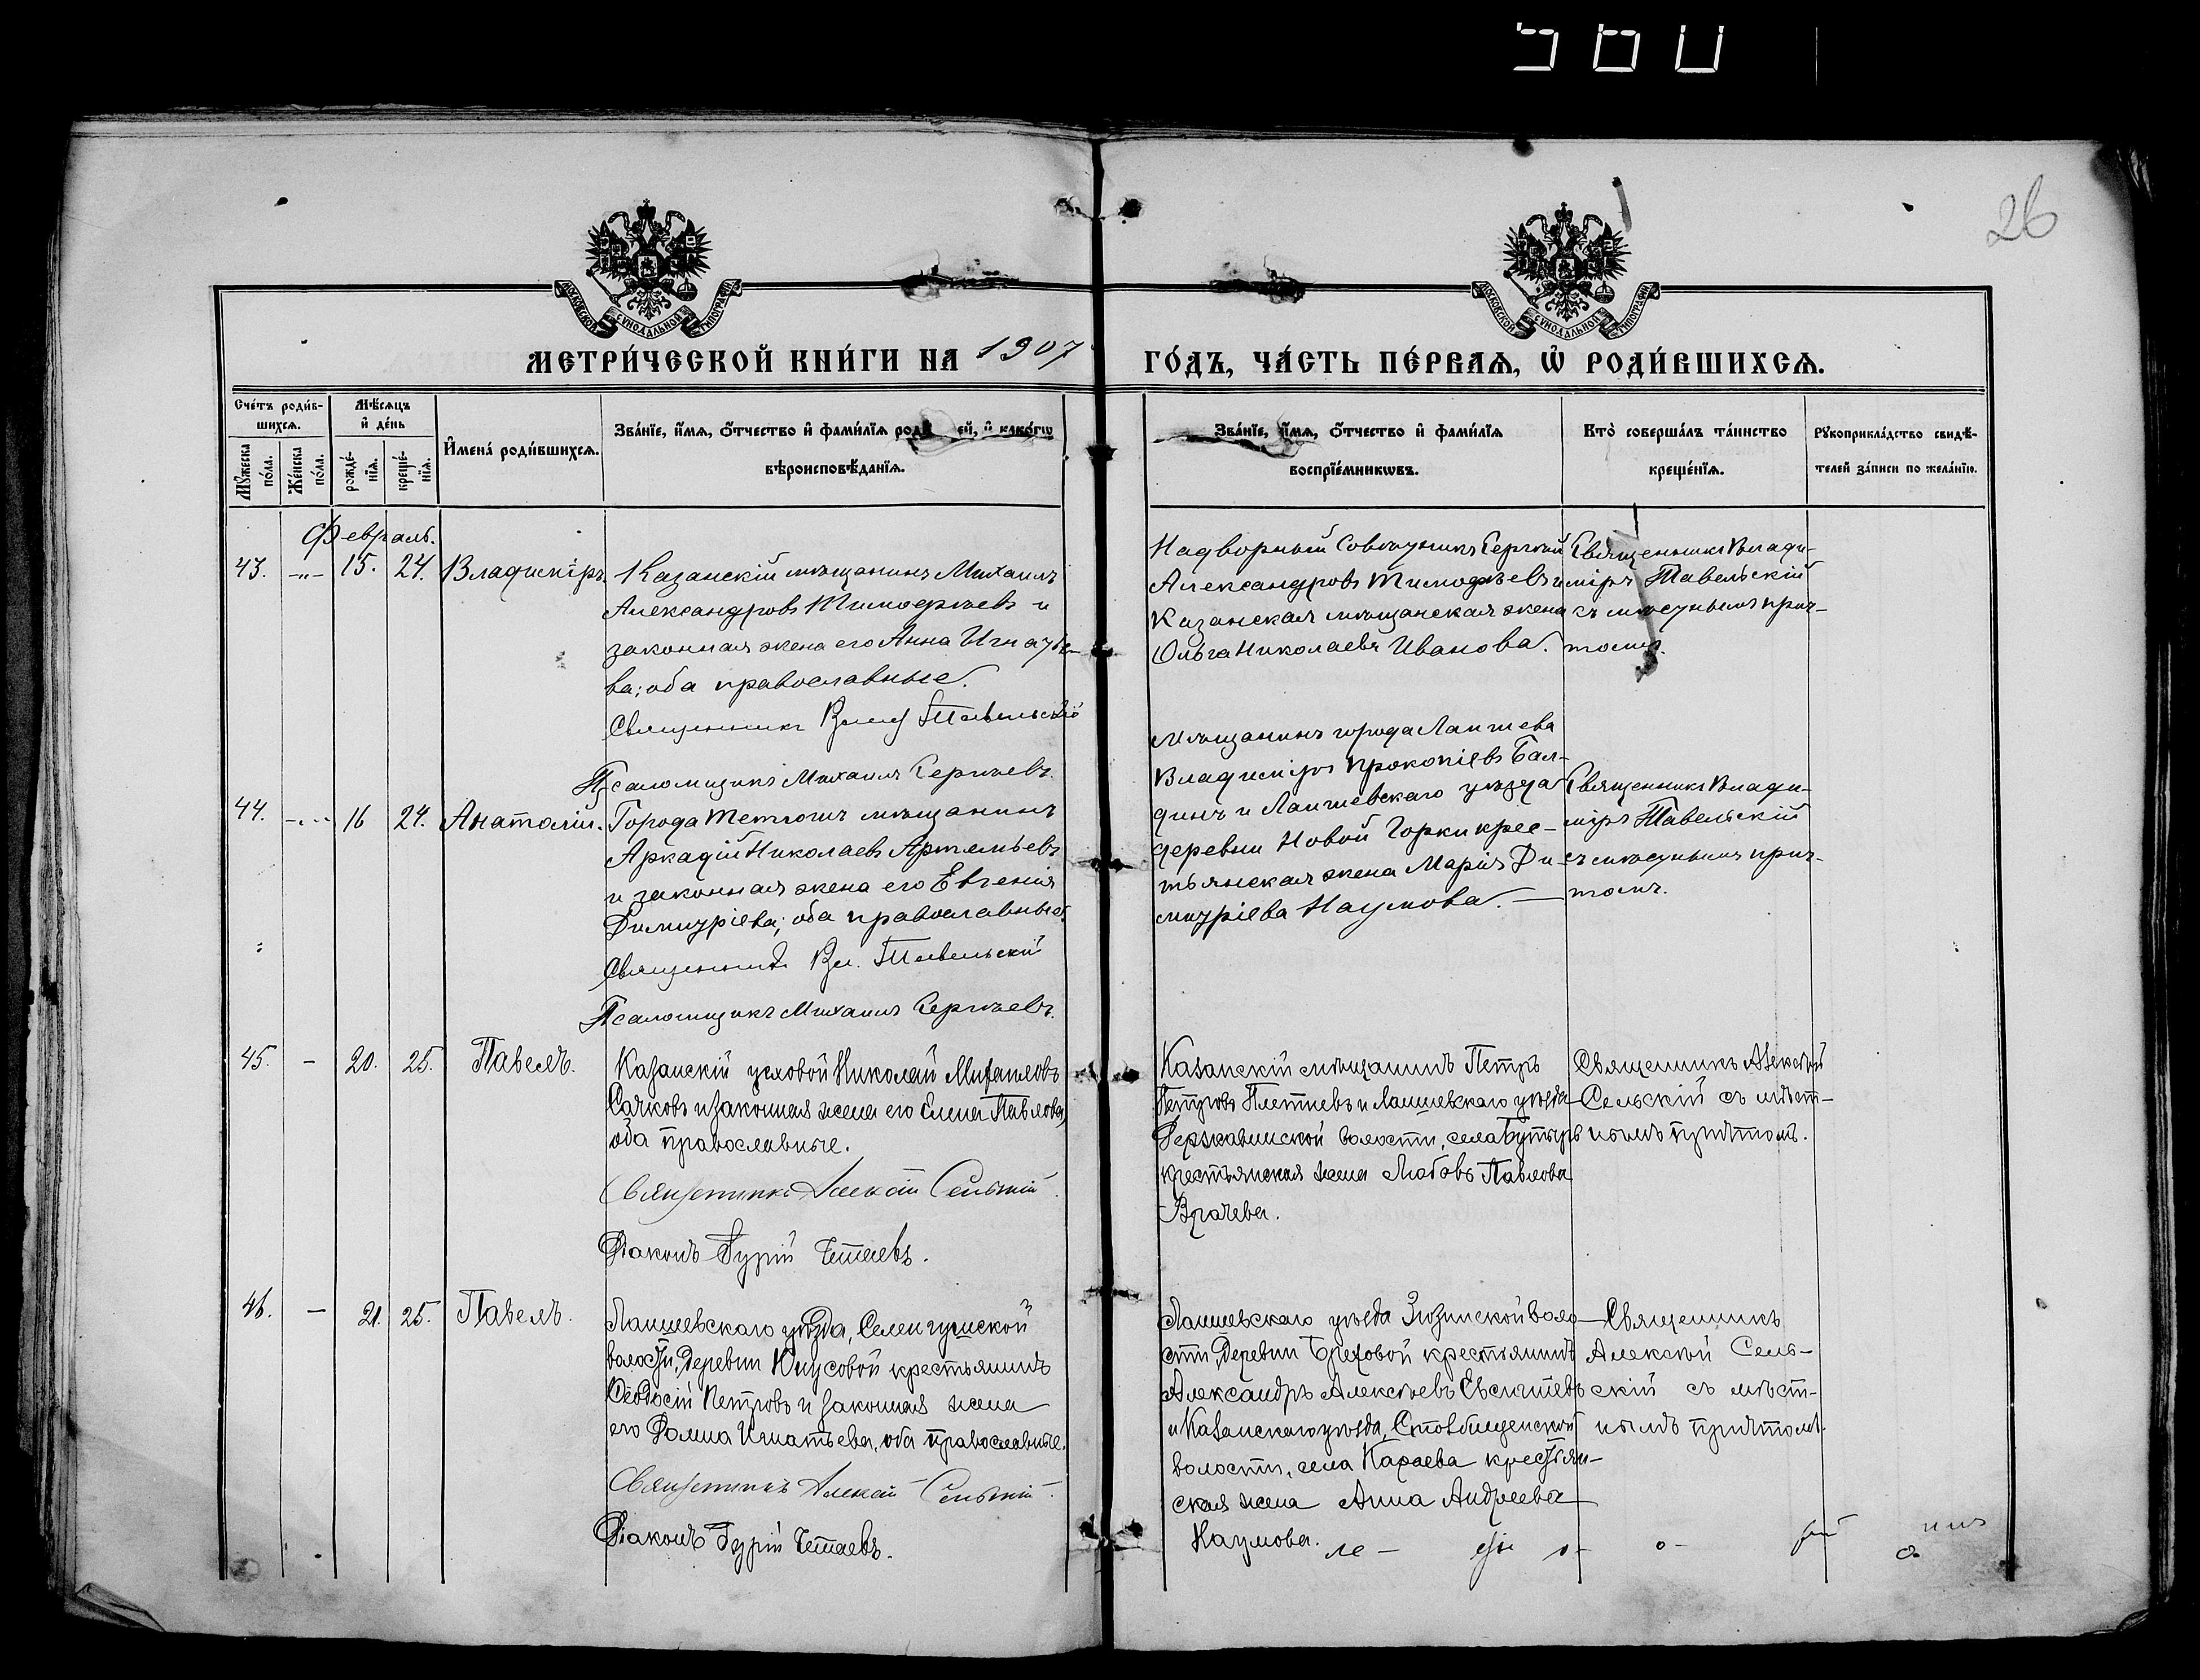 560
26
МОСКОВСКОЙ СУНОДАЛЬНОЙ ТИПОГРАФІИ
МОСКОВСКОЙ СУНОДАЛЬНОЙ ТИПОГРАФІИ
МЕТРИ́ЧЕСКОЙ КНИ́ГИ НА 1907
ГО́ДЪ, ЧА́СТЬ ПЕ́РВАѦ, Ѡ҆ РОДИ́ВШИХСѦ.
Сче́тъ роди́в-
шихсѧ.
Мѣ́сѧцъ
и҆ де́нь
Мꙋ́жеска
по́ла.
Же́нска
по́ла.
рожде́-
нїѧ.
креще́-
нїѧ.
И҆мена̀ роди́вшихсѧ.
Зва́нїе, и҆́мѧ, ѻ҆́тчество и҆ фами́лїѧ роди ей, и҆ како́гѡ
вѣроисповѣ́данїѧ.
Зва́нїе, и҆́мѧ, ѻ҆́тчество и҆ фами́лїѧ
воспрїе́мникѡвъ.
Кто̀ соверша́лъ та́инство
креще́нїѧ.
Рꙋкоприкла́дство свидѣ́-
телей за́писи по жела́нїю.
Февраль.
43. -"- 15. 24. Владиміръ.
Казанскій мѣщанинъ Михаилъ
Александровъ Тимофѣевъ и
законная жена его Анна Игнатье-
ва; оба православные.
Священникъ Влад Тавельскій
Псаломщикъ Михаилъ Сергѣевъ.
Надворный Совѣтникъ Сергѣй
Александровъ Тимофѣевъ и
Казанская мѣщанская жена
Ольга Николаева Иванова.
Священникъ Влади-
міръ Тавельскій
съ мѣстнымъ прич-
томъ.
44. -"- 16 24. Анатолій.
Города Тетюшъ мѣщанинъ
Аркадій Николаевъ Артемьевъ
и законная жена его Евгенія
Димитріева; оба православные.
Священникъ Вл. Тавельскій
Псаломщикъ Михаилъ Сергѣевъ.
Мѣщанинъ города Лаишева
Владиміръ Прокопіевъ Бал-
динъ и Лаишевскаго уѣзда
деревни Новой Горки крес-
тьянская жена Марія Ди-
митріева Наумова.
Священникъ Влади-
міръ Тавельскій
съ мѣстнымъ прич-
томъ.
45. - 20. 25. Павелъ.
Казанскій цеховой Николай Михайловъ
Сачковъ и законная жена его Елена Павлова,
оба православные.
Священникъ Алексѣй Сельскій.
Діаконъ Гурій Четаевъ.
Казанскій мѣщанинъ Петръ
Петровъ Плетневъ и Лаишевскаго уѣзда
Державинской волости, села Бутырь
крестьянская жена Любовь Павлова
Врачева.
Священникъ Алексѣй
Сельскій съ мѣст-
нымъ причтомъ.
46. - 21. 25. Павелъ.
Лаишевскаго уѣзда, Селенгушской
волости, деревни Юнусовой крестьянинъ
Ѳеодосій Петровъ и законная жена
его Домна Игнатьева, оба православные.
Священникъ Алексѣй Сельскій.
Діаконъ Гурій Четаевъ.
Лаишевскаго уѣзда Зюзинской воло-
сти, деревни Бреховой крестьянинъ
Александръ Алексѣевъ Евсигнѣевъ
и Казанскаго уѣзда, Столбищенской
волости, села Караева крестьян-
ская жена Анна Андреева
Наумова.
Священникъ
Алексѣй Сель-
скій съ мѣст-
нымъ причтомъ.